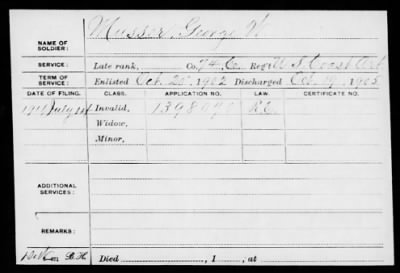 NAME OF SOLDIER: Musser, George W.
SERVICE: Late rank, Co. 74 C., Reg't U.S. Coast Art.
TERM OF SERVICE: Enlisted Oct. 1902 Discharged Oct. 19, 1905
DATE OF FILING. CLASS. APPLICATION NO. LAW. CERTIFICATE NO.
July Invalid, 1398
Widow,
Minor,
ADDITIONAL SERVICES:
REMARKS:
B. H. Died , 1 , at